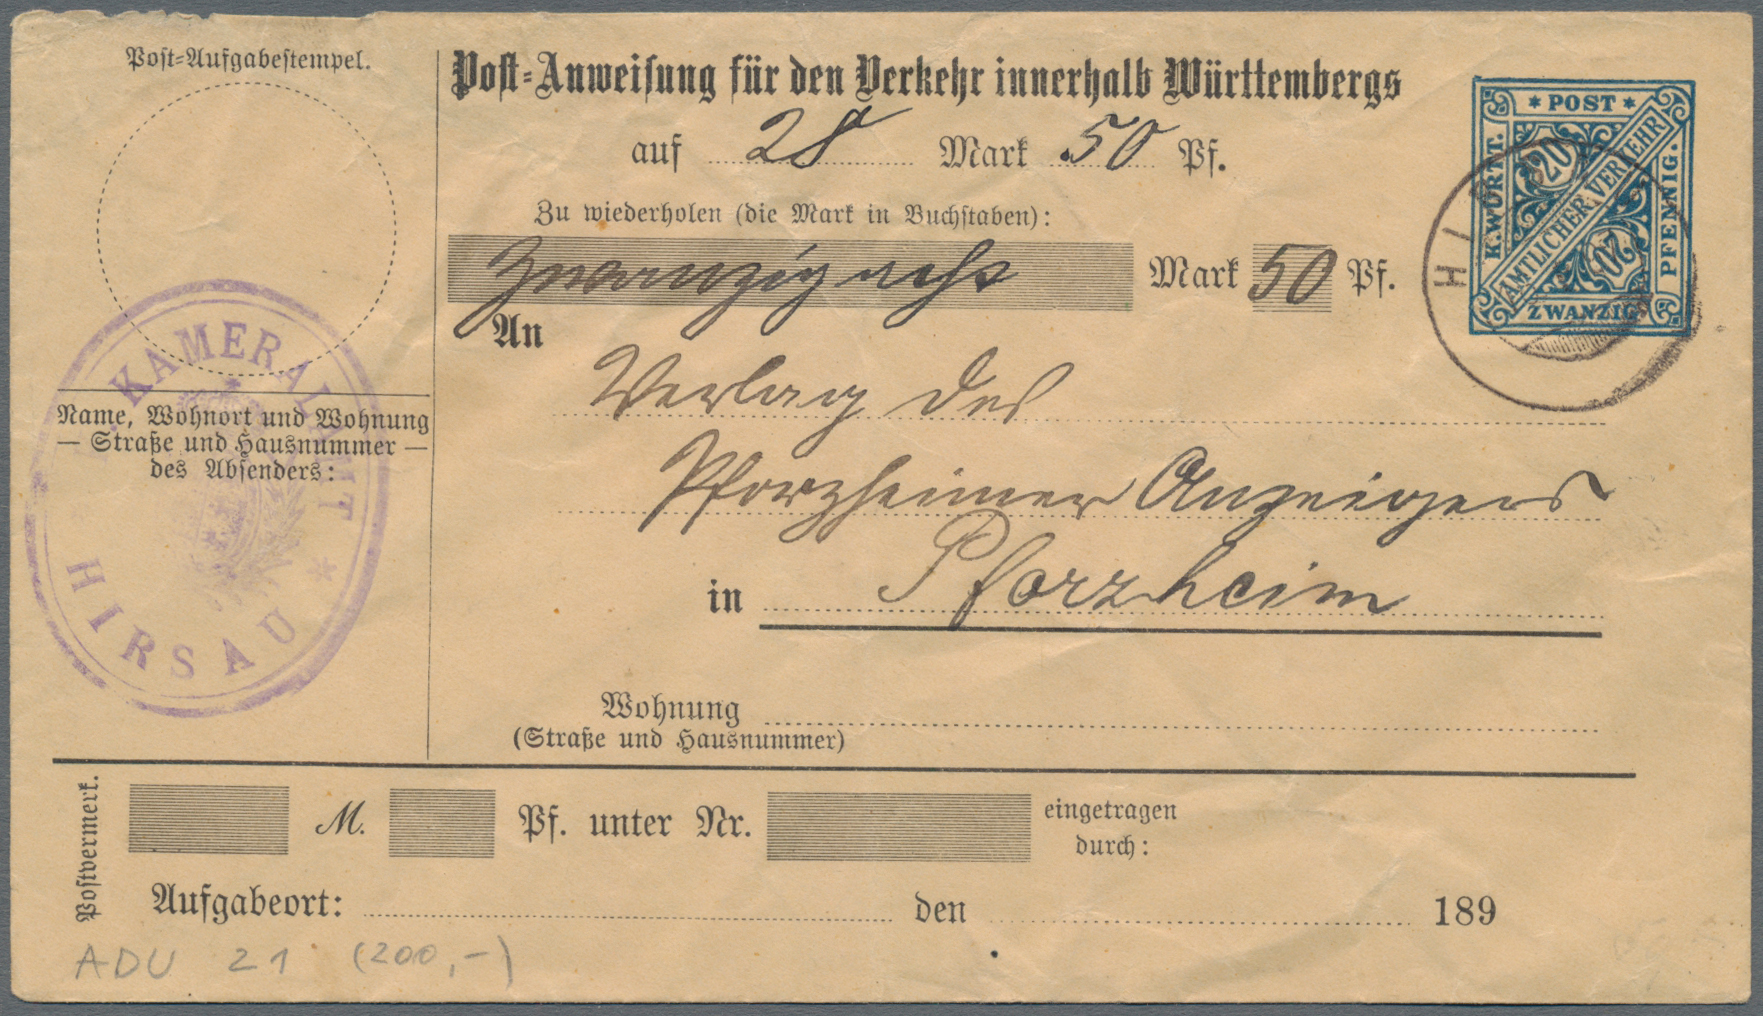 Post-Aufgabestempel.
Post-Anweisung für den Verkehr innerhalb Württembergs
auf 28 Mark 50 Pf.
Zu wiederholen (die Mark in Buchstaben):
Mark 50 Pf.
An
Verlag des
Pforzheimer Anzeigers
in Pforzheim
Wohnung
(Straße und Hausnummer)
Name, Wohnort und Wohnung
— Straße und Hausnummer —
des Absenders:
KAMERALAMT
* HIRSAU *
* POST *
K.WÜRTT.
20
AMTLICHER VERKEHR
20
PFENNIG.
ZWANZIG
HI
Postvermerk.
M. Pf. unter Nr. eingetragen
durch:
Aufgabeort: den 189
ADU 21 (200,-)